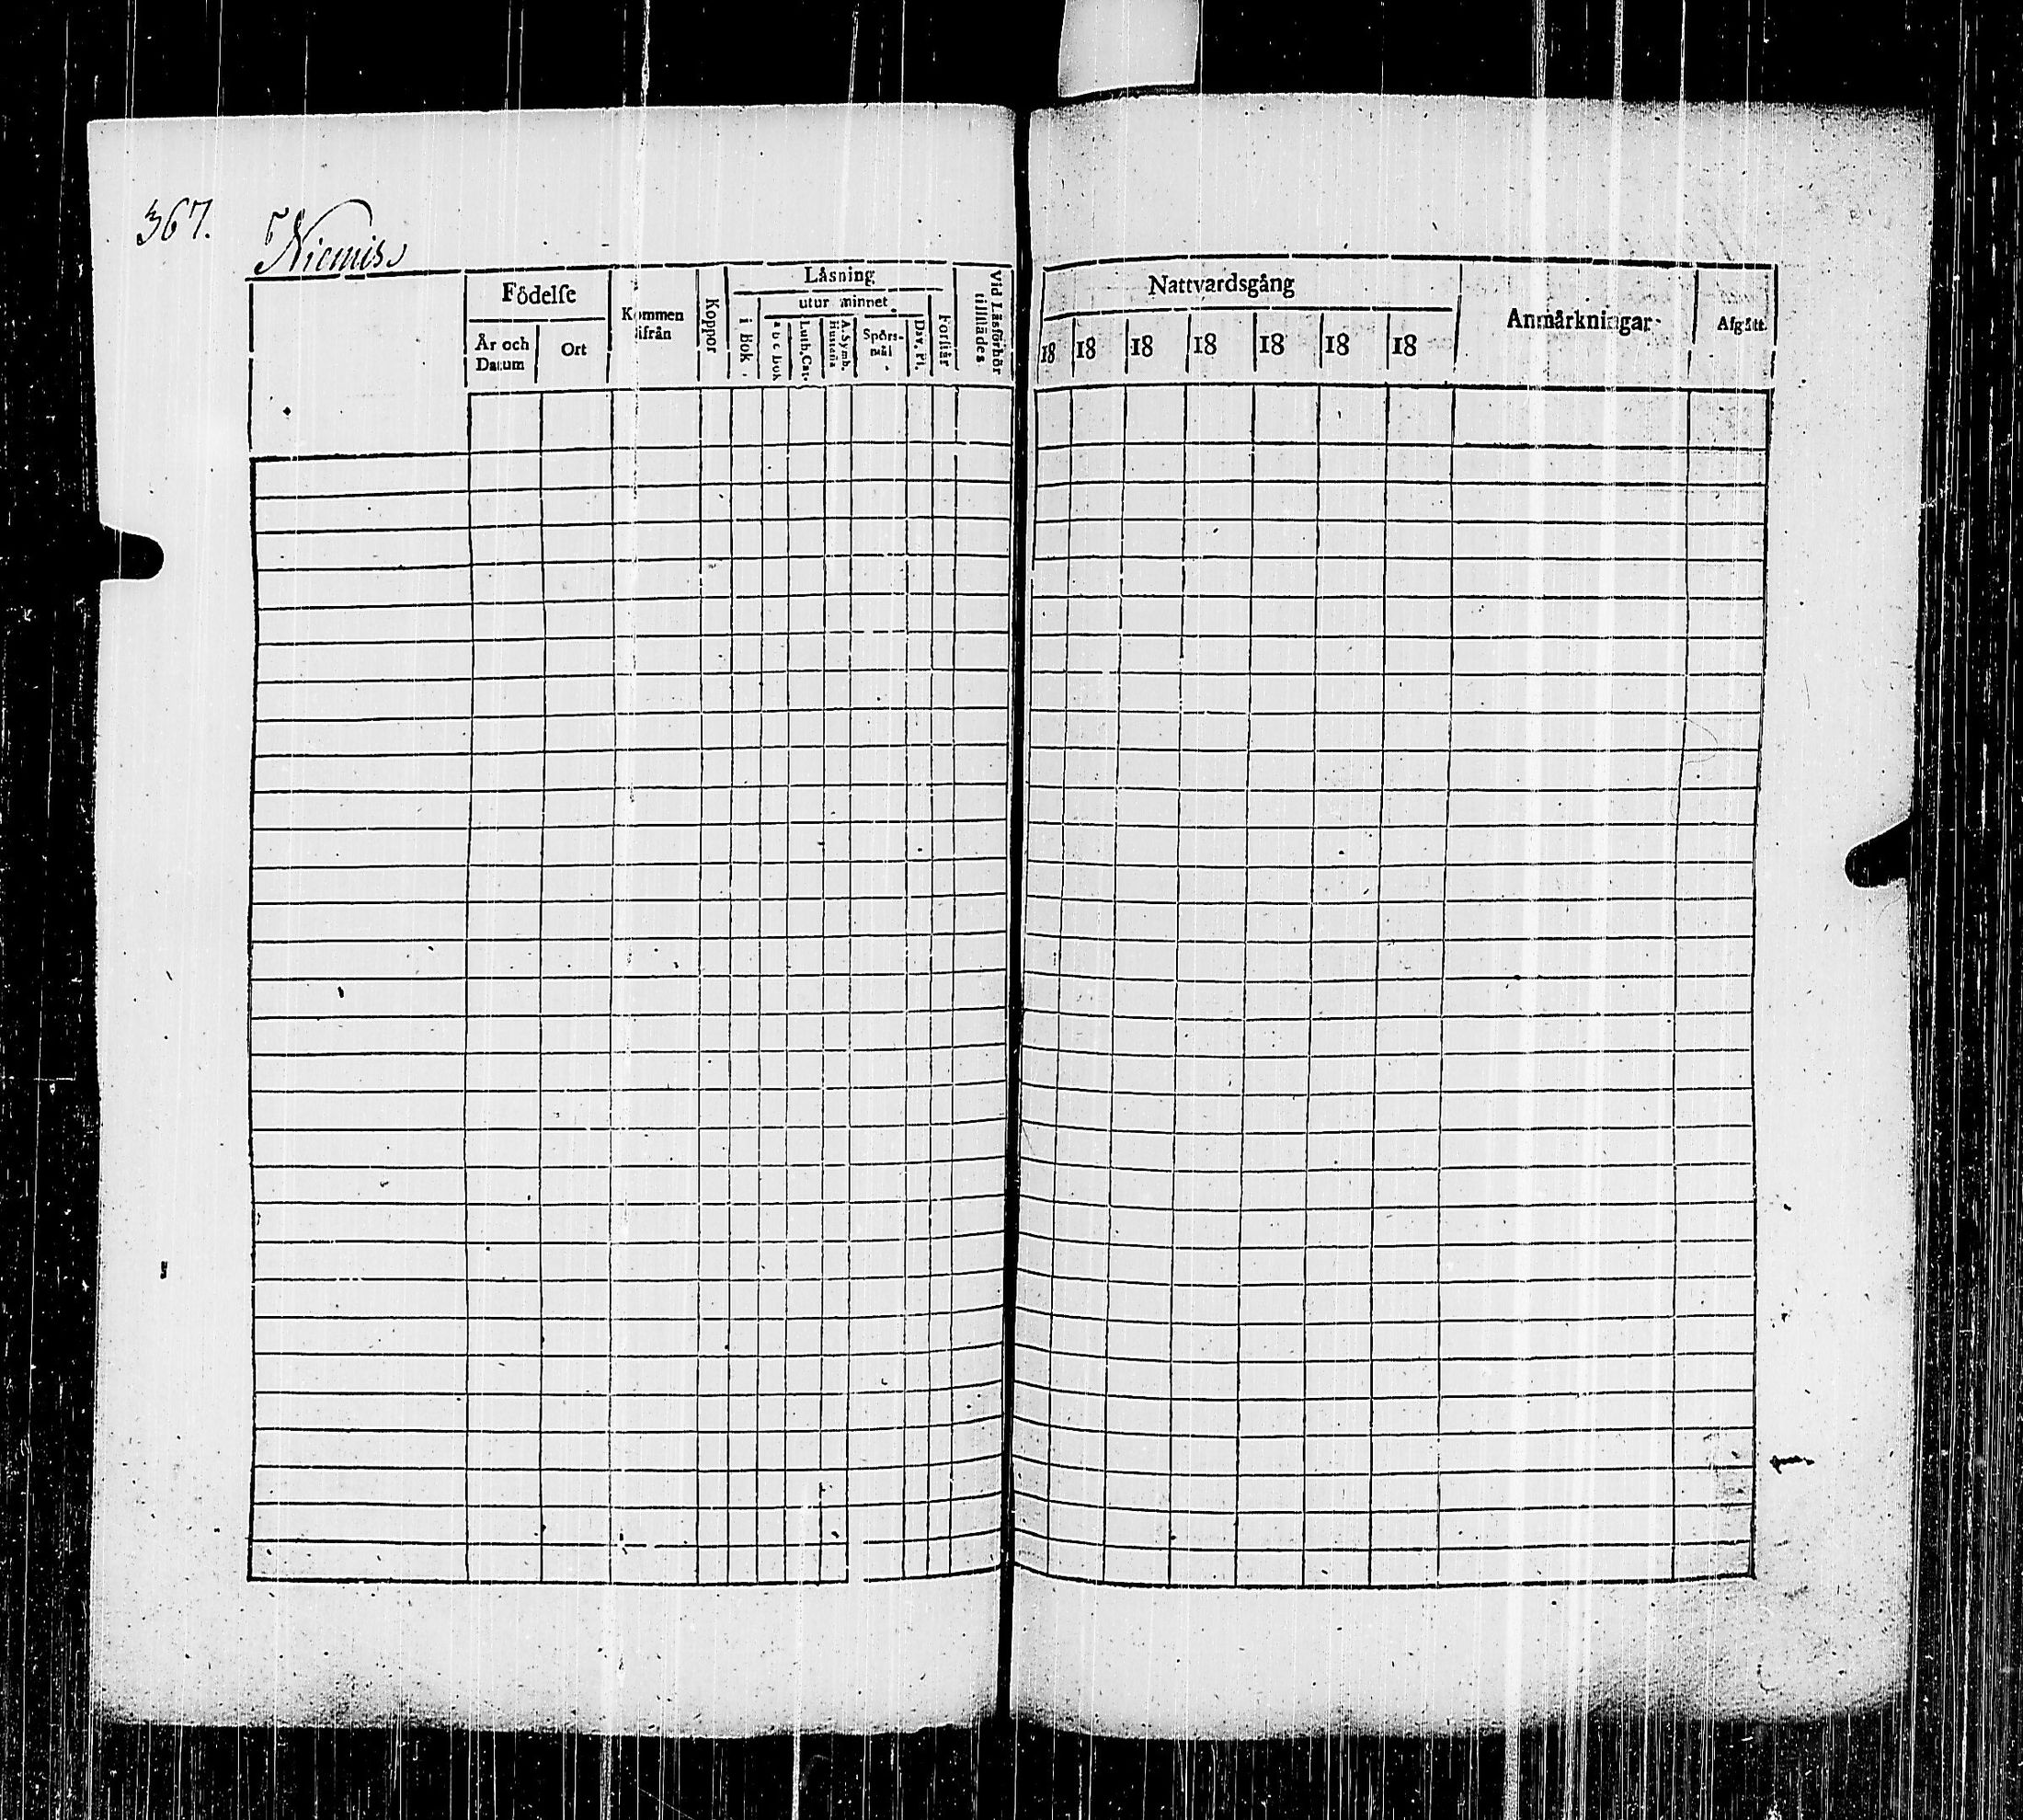 367.
Niemis
Födelse
År och Datum
Ort
Kommen ifrån
Koppor
Läsning
i Bok
utur minnet
a b c bok
Luth. Cat.
A. Symb. Hustafla
Spörs-mål
Dav. Ps.
Förstår
Vid Läsförhör tillstädes
Nattvardsgång
18 18 18 18 18 18 18
Anmärkningar
Afgått.